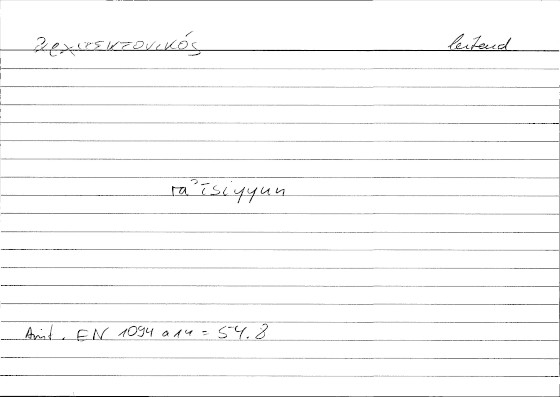 ἀρχιτεκτονικός leitend
raʾīsiyyun
Arist. EN 1094 a 14 = 54.8